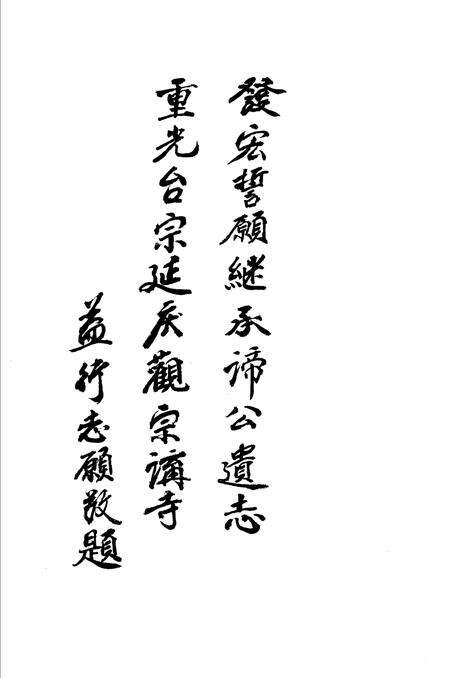 發宏誓願继承谛公遺志
重光台宗延庆觀宗講寺
益行志願敬題